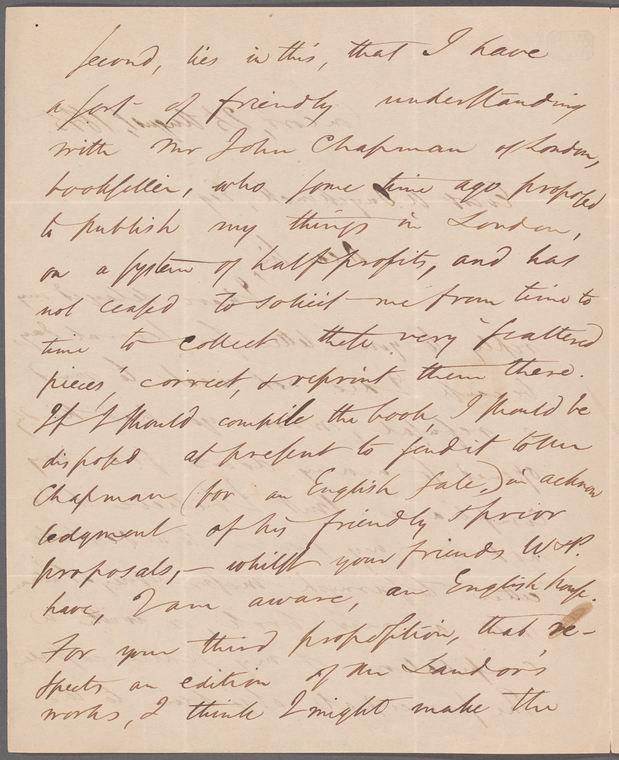 second, lies in this, that I have
a sort of friendly understanding
with Mr John Chapman of London,
bookseller, who some time ago proposed
to publish my things in London,
on a system of half profits, and has
not ceased to solicit me from time to
time to collect these very "scattered
pieces", correct, & reprint them there.
If I should compile the book, I should be
disposed at present to send it to Mr
Chapman (for an English sale,) in acknow
ledgment of his friendly & prior
proposals,— whilst your friends W. & P.
have, I am aware, an English house.
For your third proposition, that re-
spects an edition of Mr Landor's
works, I think I might make the